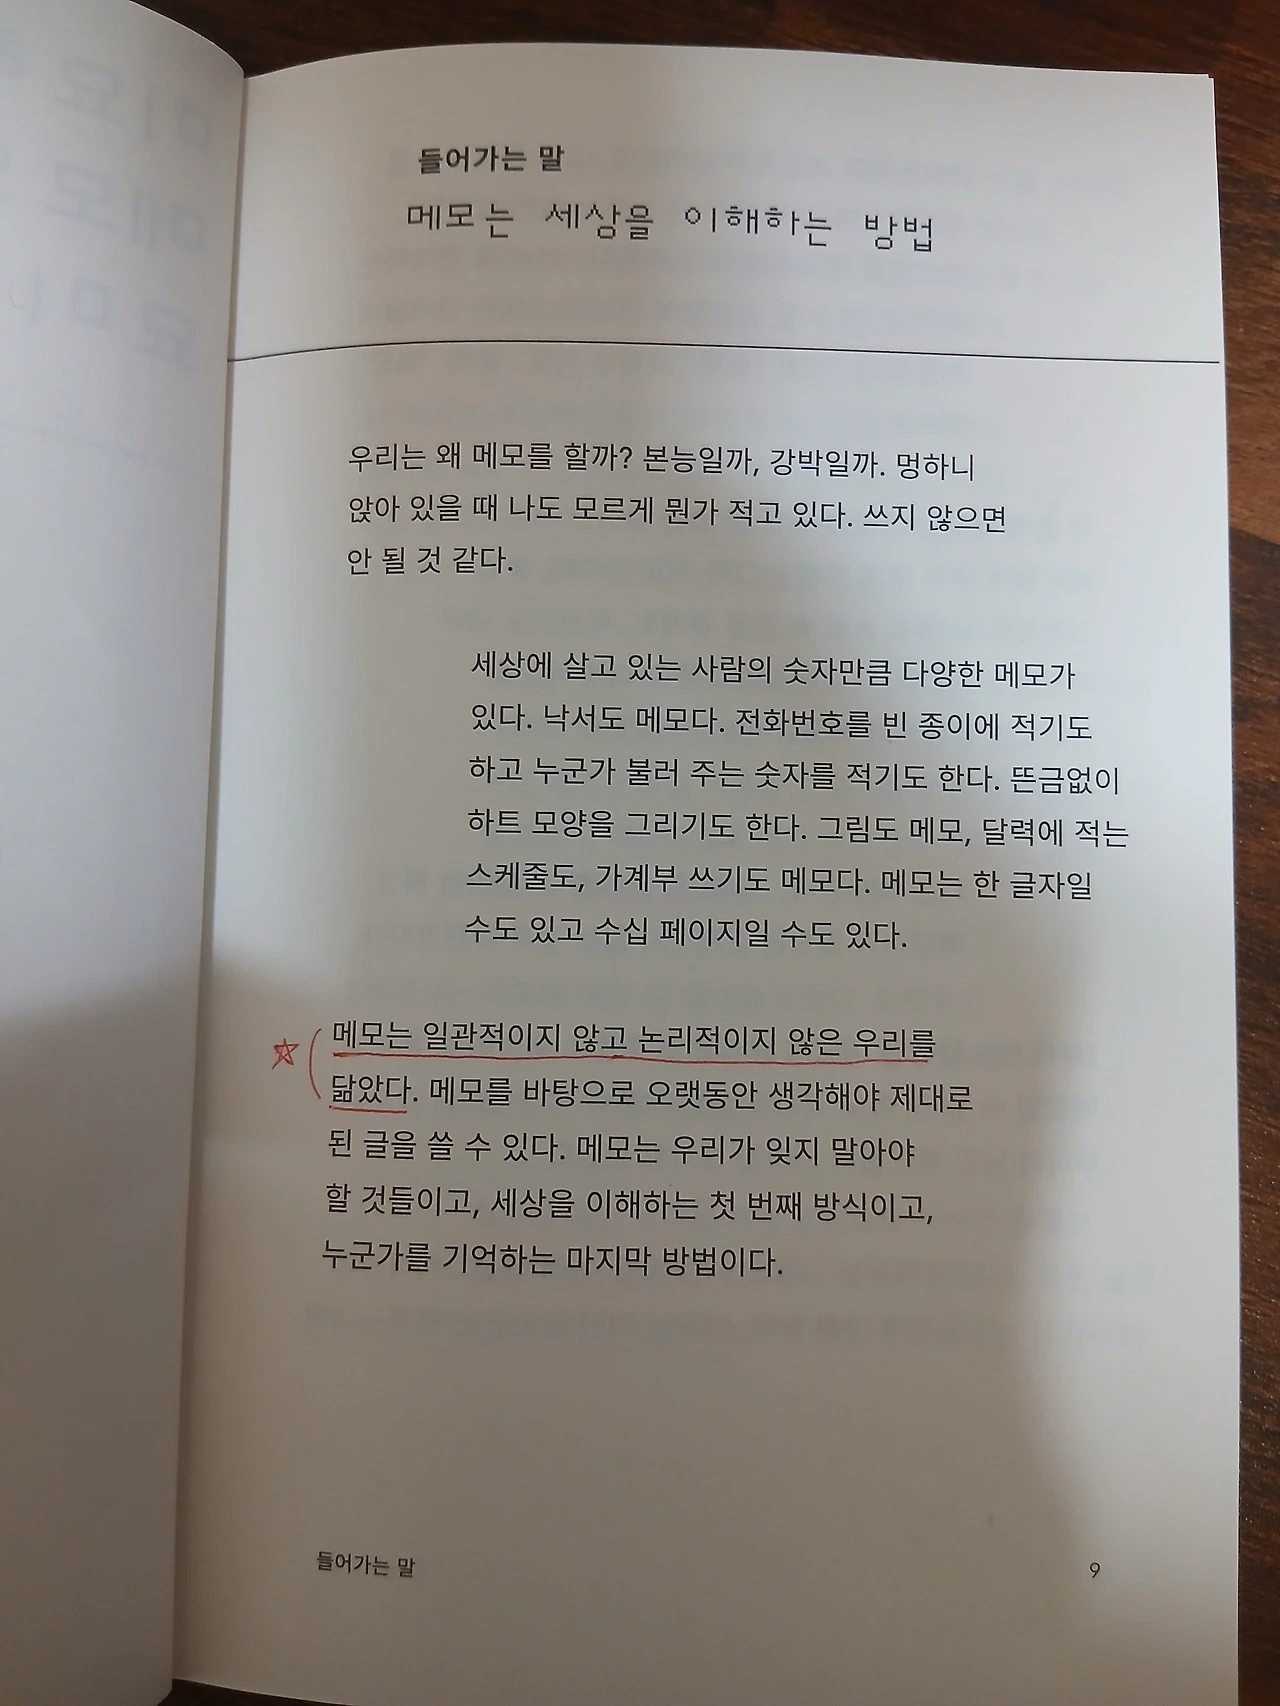 들어가는 말
메모는 세상을 이해하는 방법
우리는 왜 메모를 할까? 본능일까, 강박일까. 멍하니
앉아 있을 때 나도 모르게 뭔가 적고 있다. 쓰지 않으면
안 될 것 같다.
세상에 살고 있는 사람의 숫자만큼 다양한 메모가
있다. 낙서도 메모다. 전화번호를 빈 종이에 적기도
하고 누군가 불러 주는 숫자를 적기도 한다. 뜬금없이
하트 모양을 그리기도 한다. 그림도 메모, 달력에 적는
스케줄도, 가계부 쓰기도 메모다. 메모는 한 글자일
수도 있고 수십 페이지일 수도 있다.
메모는 일관적이지 않고 논리적이지 않은 우리를
닮았다. 메모를 바탕으로 오랫동안 생각해야 제대로
된 글을 쓸 수 있다. 메모는 우리가 잊지 말아야
할 것들이고, 세상을 이해하는 첫 번째 방식이고,
누군가를 기억하는 마지막 방법이다.
들어가는 말
9